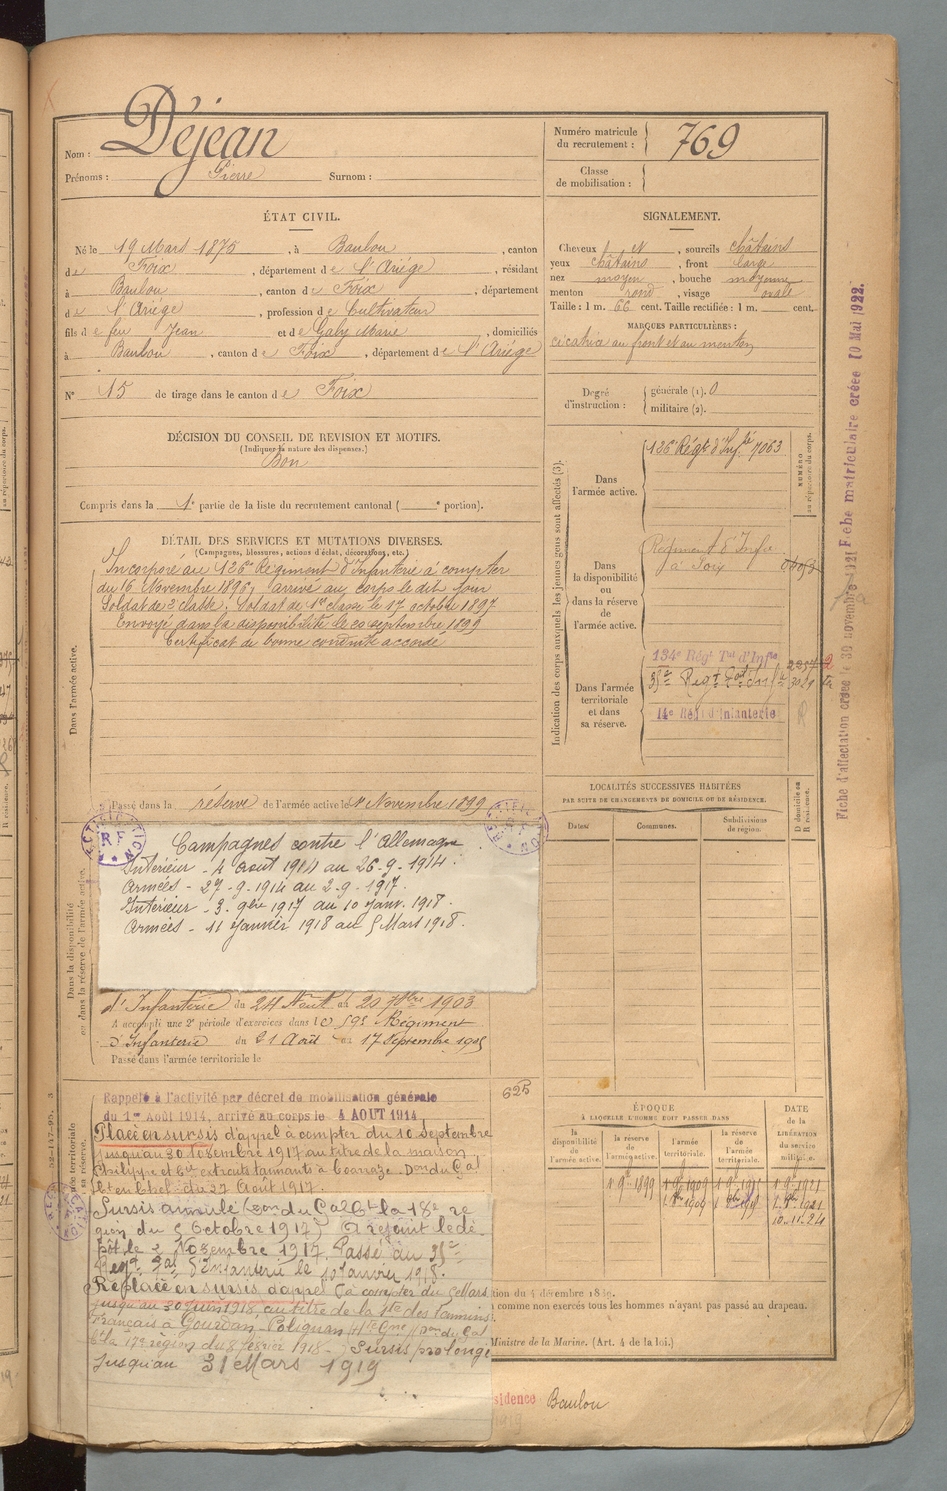 Nom : Déjean
Prénoms : Pierre Surnom :
Numéro matricule du recrutement : 769
Classe de mobilisation :
ÉTAT CIVIL.
Né le 19 Mars 1875, à Baulou, canton
de Foix, département de l'Ariége, résidant
à Baulou, canton de Foix, département
de l'Ariége, profession de Cultivateur
fils de feu Jean et de Galy Marie, domiciliés
à Baulou, canton de Foix, département de l'Ariége
N° 15 de tirage dans le canton de Foix
DÉCISION DU CONSEIL DE REVISION ET MOTIFS.
(Indiquer la nature des dispenses.)
Bon
Compris dans la 1e partie de la liste du recrutement cantonal ( e portion).
SIGNALEMENT.
Cheveux et, sourcils châtains
yeux châtains, front large
nez moyen, bouche moyenne
menton rond, visage ovale
Taille : 1 m. 66 cent. Taille rectifiée : 1 m. cent.
MARQUES PARTICULIÈRES :
cicatrice au front et au menton
Degré d'instruction : générale (1). 0
militaire (2).
DÉTAIL DES SERVICES ET MUTATIONS DIVERSES.
(Campagnes, blessures, actions d'éclat, décorations, etc.)
Dans l'armée active.
Incorporé au 126e Régiment d'Infanterie à compter
du 16 Novembre 1896, arrivé au corps le dit jour
Soldat de 2e classe. Soldat de 1re classe le 17 octobre 1897
Envoyé dans la disponibilité le 20 septembre 1899
Certificat de bonne conduite accordé
Passé dans la réserve de l'armée active le 1er Novembre 1899
RECTIFICATION
RF
Dans la disponibilité ou dans la réserve de l'armée active.
Campagnes contre l'Allemagne
Intérieur - 4 août 1914 au 26-9-1914.
Armées - 27-9-1914 au 2-9-1917.
Intérieur - 3. 9bre 1917 au 10 janv. 1918.
Armées - 11 janvier 1918 au 5 Mars 1918.
d'Infanterie du 24 Août au 20 7bre 1903
A accompli une 2e période d'exercices dans le 59e Régiment
d'Infanterie du 21 Août au 17 Septembre 1905
Passé dans l'armée territoriale le
Rappelé à l'activité par décret de mobilisation générale
du 1er Août 1914, arrivé au corps le 4 AOUT 1914
Placé en sursis d'appel à compter du 10 Septembre
jusqu'au 30 Novembre 1917 au titre de la maison
Philippe et Cie extraits tannants à Coarraze. Don du Gal
Ct en Chef du 27 Août 1917.
Sursis annulé (Don du Gal Ct la 18e ré
gion du 5 Octobre 1917) A rejoint le dé
pôt le 2 Novembre 1917. Passé au 35e
Regt Tal d'Infanterie le 10 Janvier 1918.
Replacé en sursis d'appel (à compter du 6 Mars
jusqu'au 30 Juin 1918 au titre de la Sté des Tannins
Français à Gourdan-Polignan Hte Gne) (Don du Gal
Ct la 17e région du 8 février 1918 - ) Sursis prolongé
jusqu'au 31 Mars 1919
625
Indication des corps auxquels les jeunes gens sont affectés (3).
NUMÉRO au répertoire du corps.
Dans l'armée active.
126e Régt d'Infrie 7063
Dans la disponibilité ou dans la réserve de l'armée active.
Régiment d'Infie
à Foix
Dans l'armée territoriale et dans sa réserve.
134e Régt Tal d'Infie
35e Régt Tal d'Inf
14e Régt d'Infanterie
LOCALITÉS SUCCESSIVES HABITÉES
PAR SUITE DE CHANGEMENTS DE DOMICILE OU DE RÉSIDENCE.
Dates. Communes. Subdivisions de région. D domicile ou R résidence.
ÉPOQUE
À LAQUELLE L'HOMME DOIT PASSER DANS
DATE de la LIBÉRATION du service militaire.
la disponibilité de l'armée active. la réserve de l'armée active. l'armée territoriale. la réserve de l'armée territoriale.
1-9bre 1899 1-9bre 1909 1-9bre 1915 1-9bre 1921
10-11-24
comme non exercés tous les hommes n'ayant pas passé au drapeau.
Ministre de la Marine. (Art. 4 de la loi.)
sidence Baulou
Fiche d'affectation créée le 30 novembre 1921
Fiche matriculaire créée 10 Mai 1922.